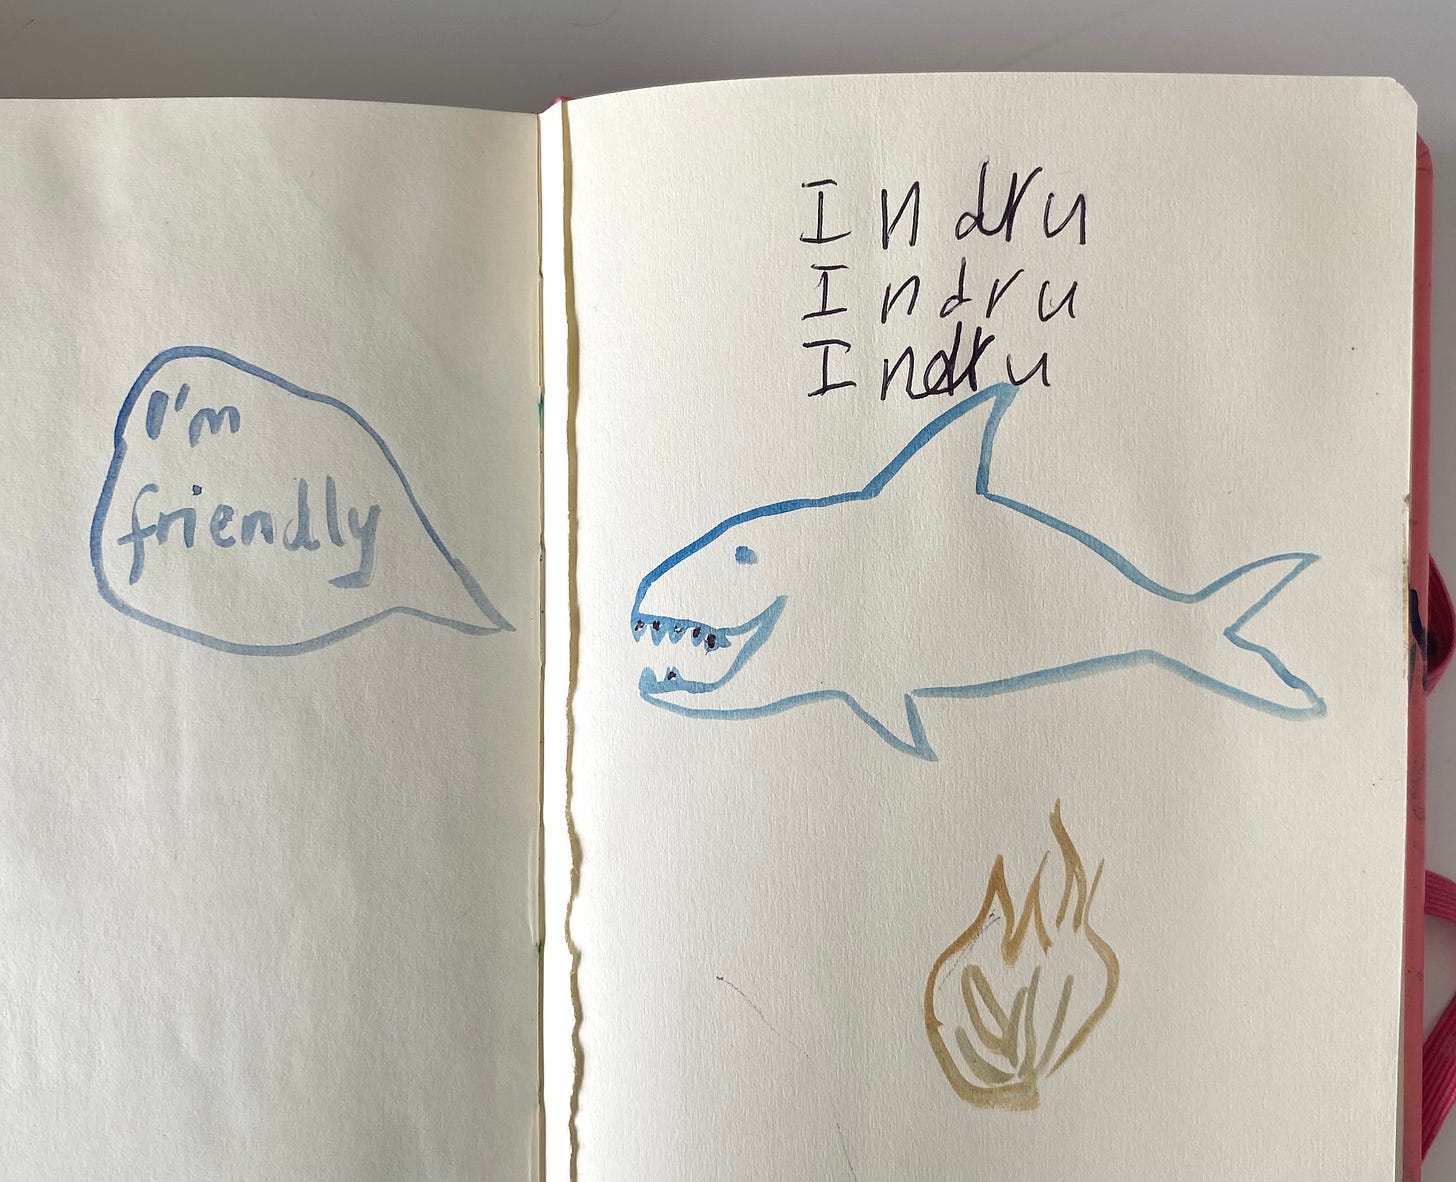 I'm
friendly
Indru
Indru
Indru